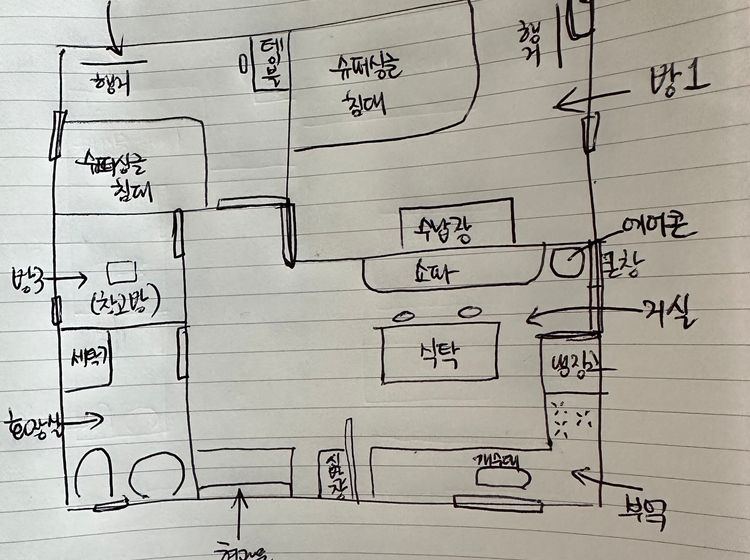 행거
테이블
슈퍼싱글
침대
행거
방1
슈퍼싱글
침대
수납장
에어콘
소파
큰창
방3
(창고방)
거실
식탁
세탁기
냉장고
화장실
신발장
개수대
부엌
현관